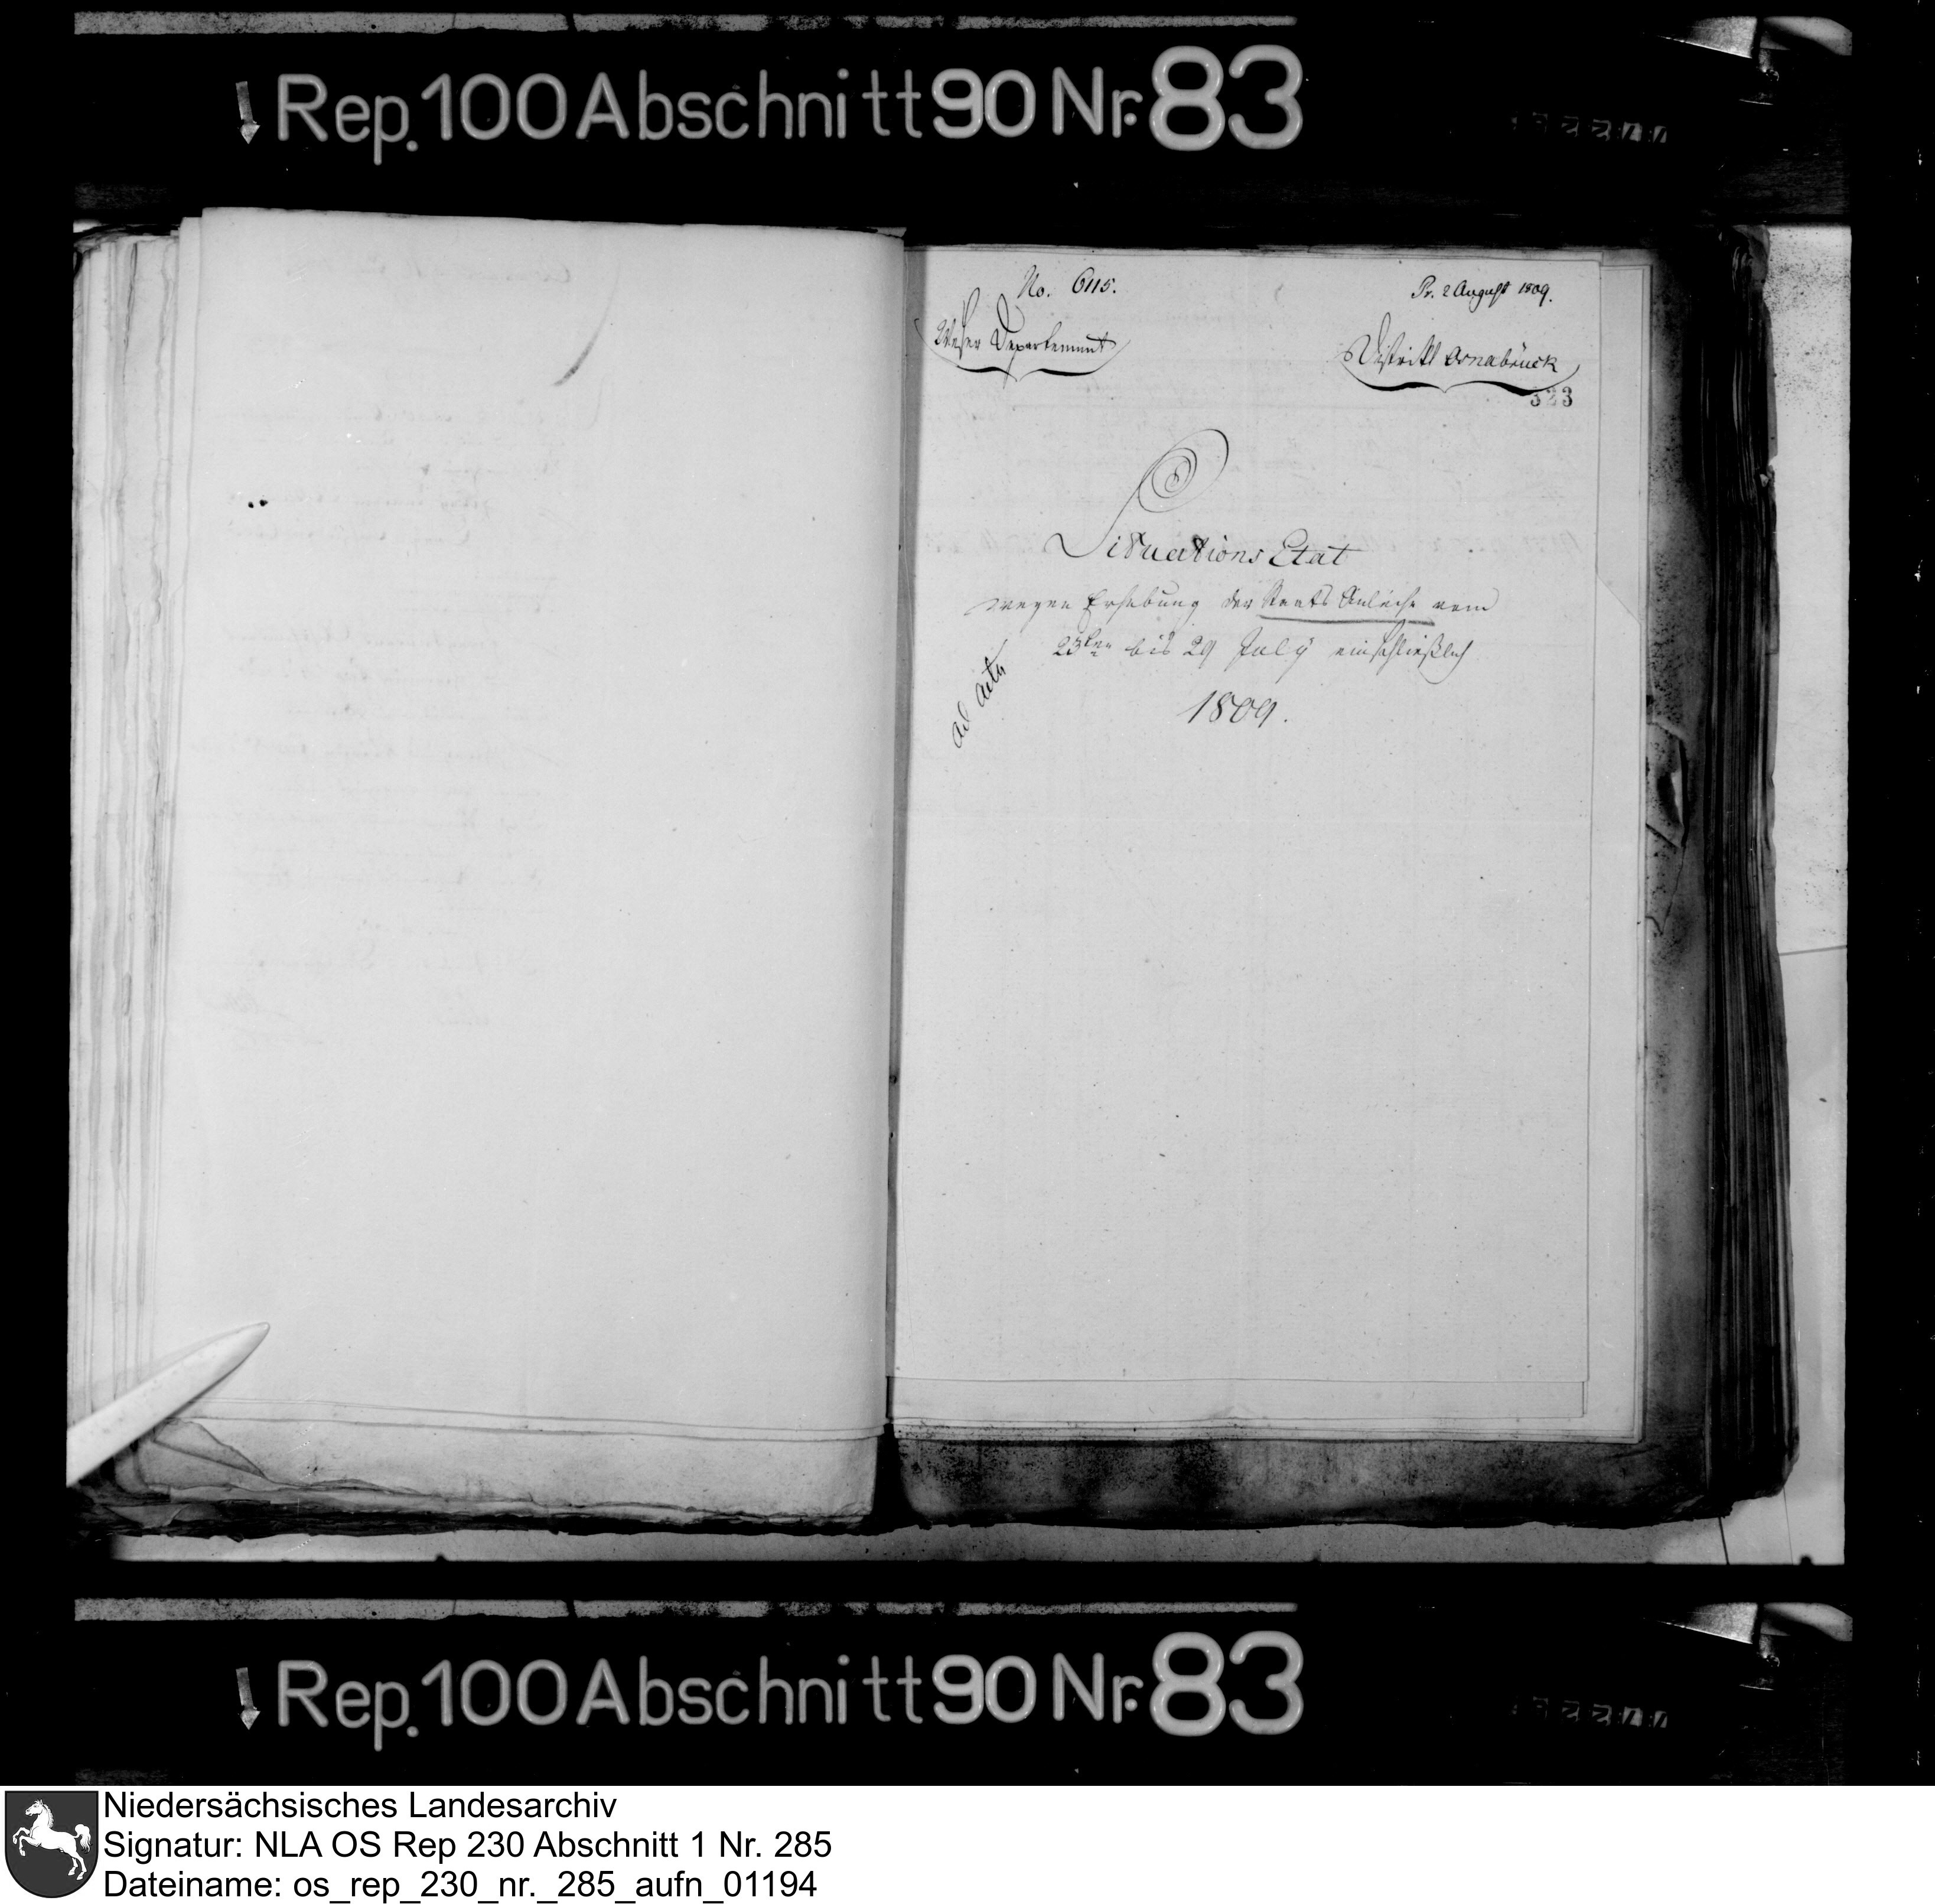 Rep. 100 Abschnitt 90 Nr. 83
No. 6115.
Pr. 2 August 1809.
Weser Departement
Distrikt Osnabrück
323
Situations Etat
wegen Erhebung der Staats Anleihe vom
23ten bis 29 July einschließlich
1809.
ad acta
Rep. 100 Abschnitt 90 Nr. 83
Niedersächsisches Landesarchiv
Signatur: NLA OS Rep 230 Abschnitt 1 Nr. 285
Dateiname: os_rep_230_nr._285_aufn_01194